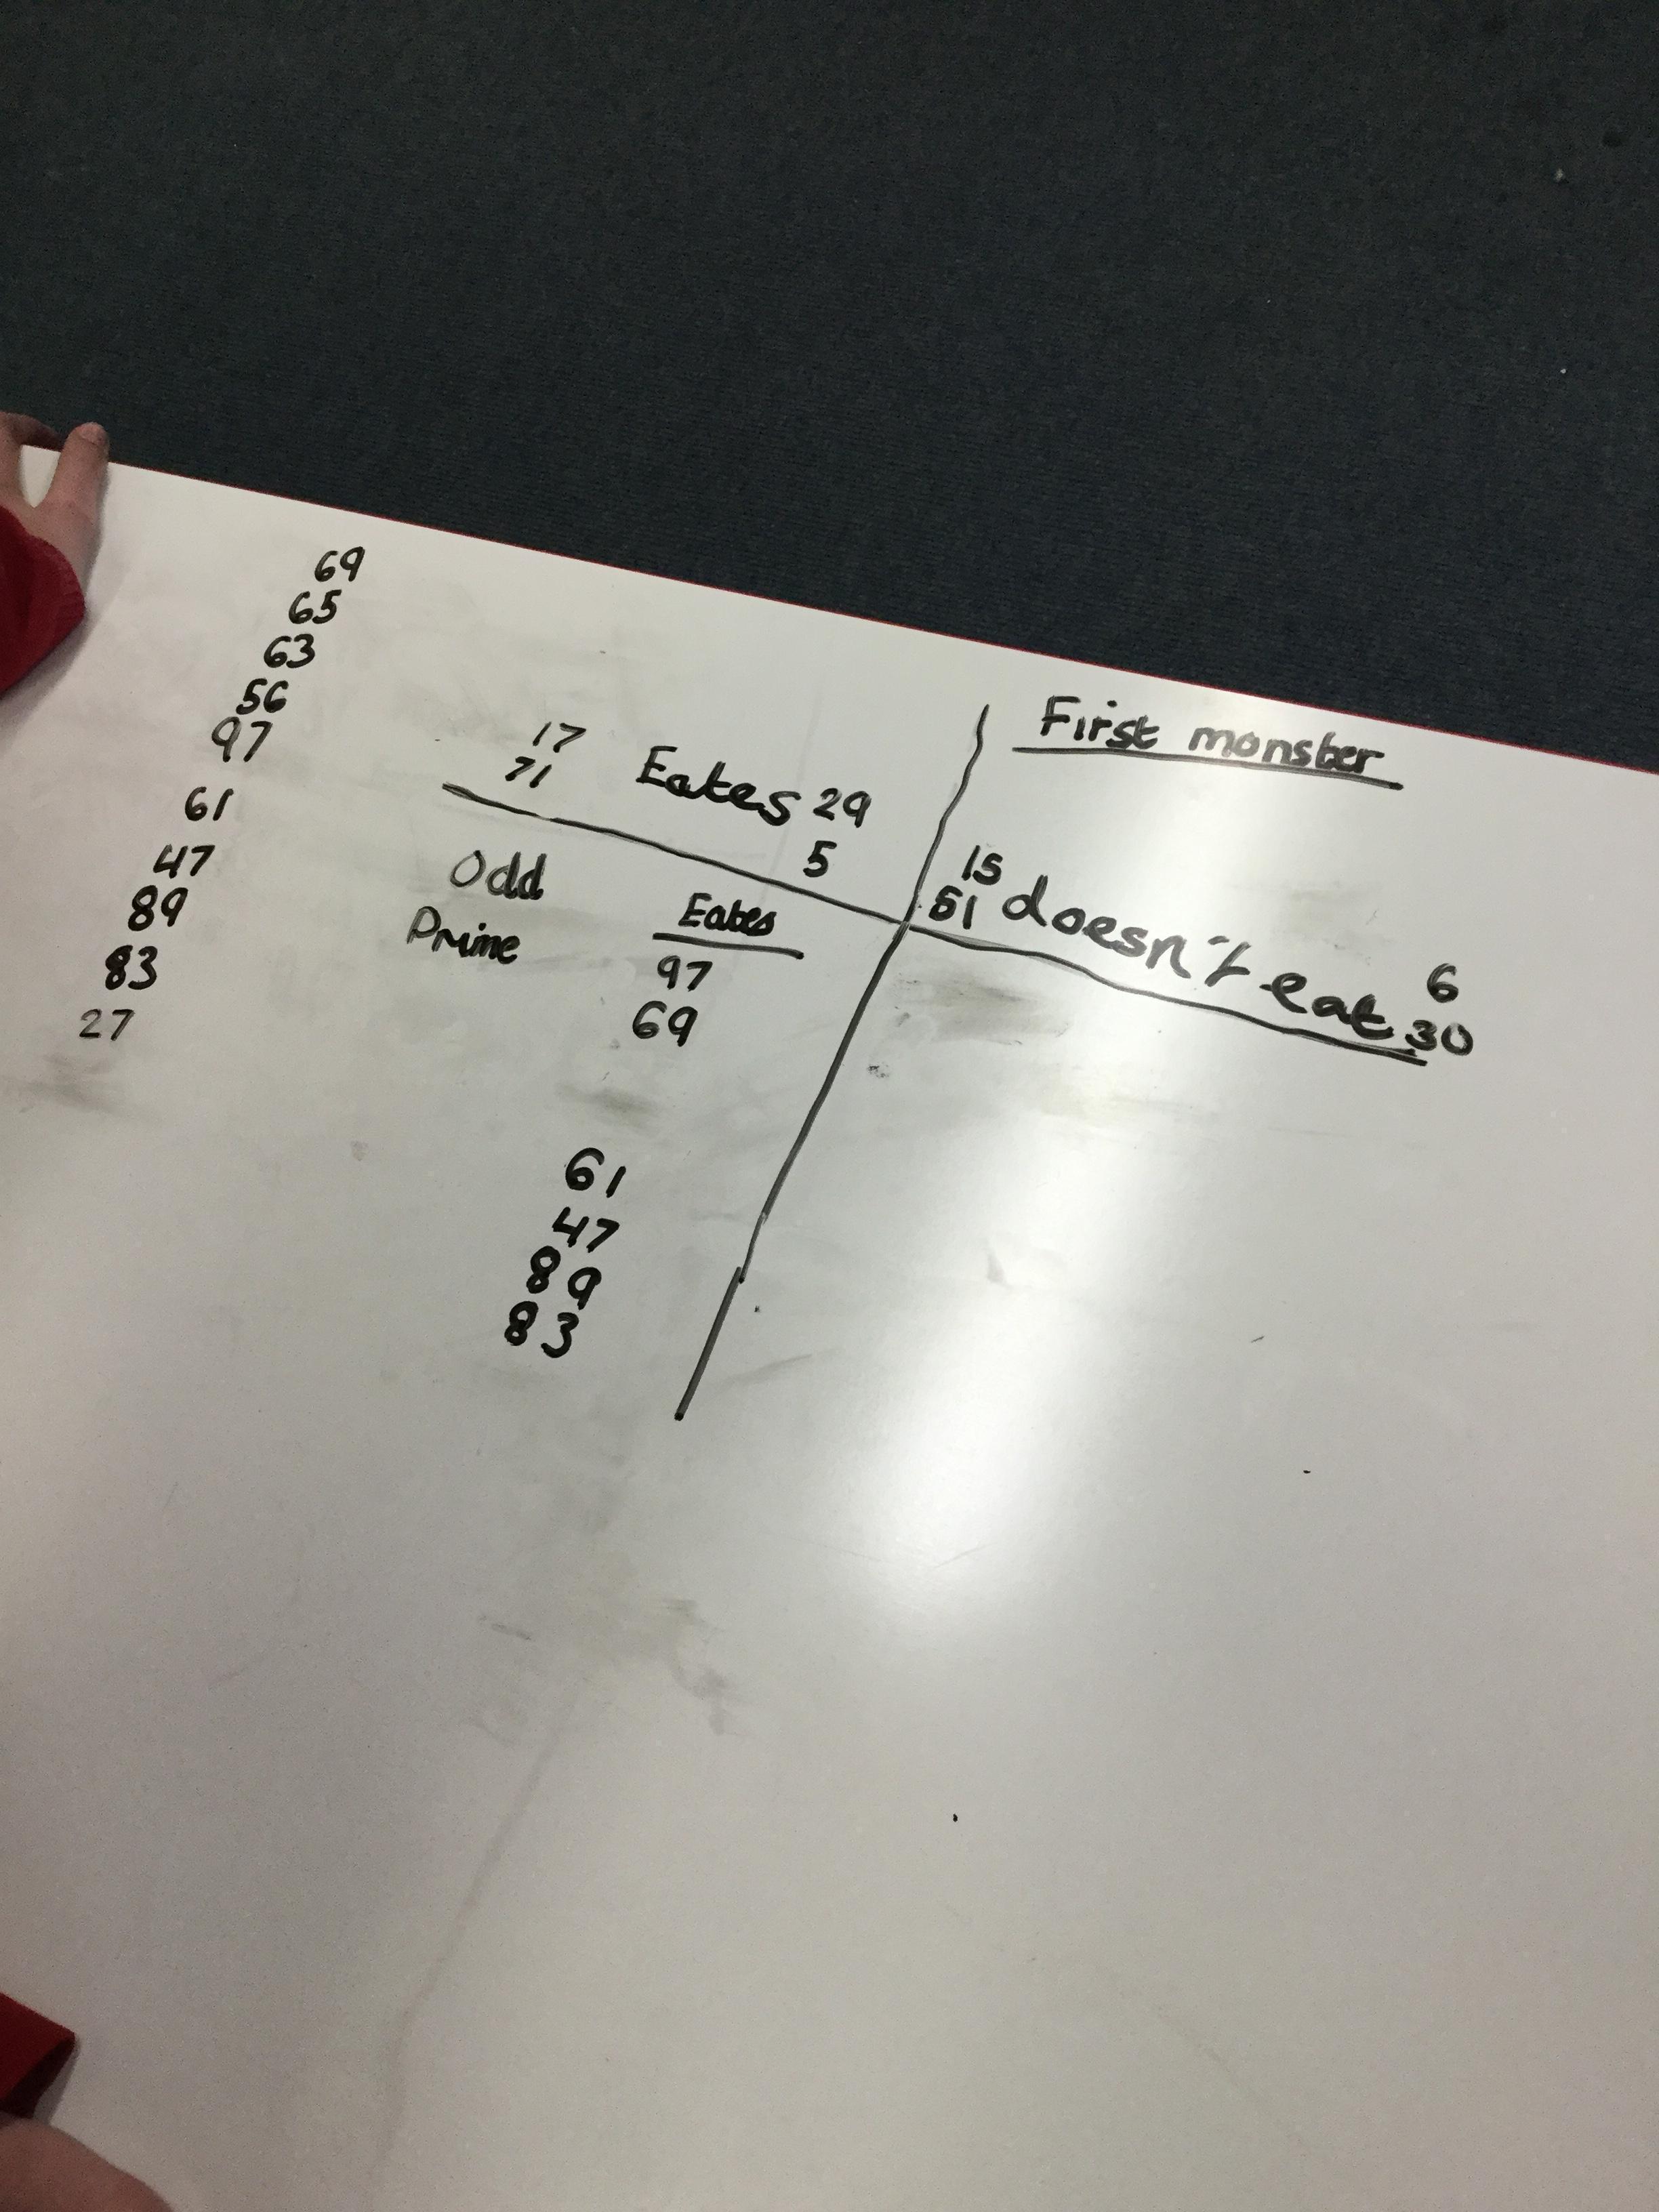 69
65
63
56
97
61
47
89
83
27
First monster
17
71
Eates 29
5
15
51
doesn't eat
6
30
Odd
Prime
Eates
97
69
61
47
89
83